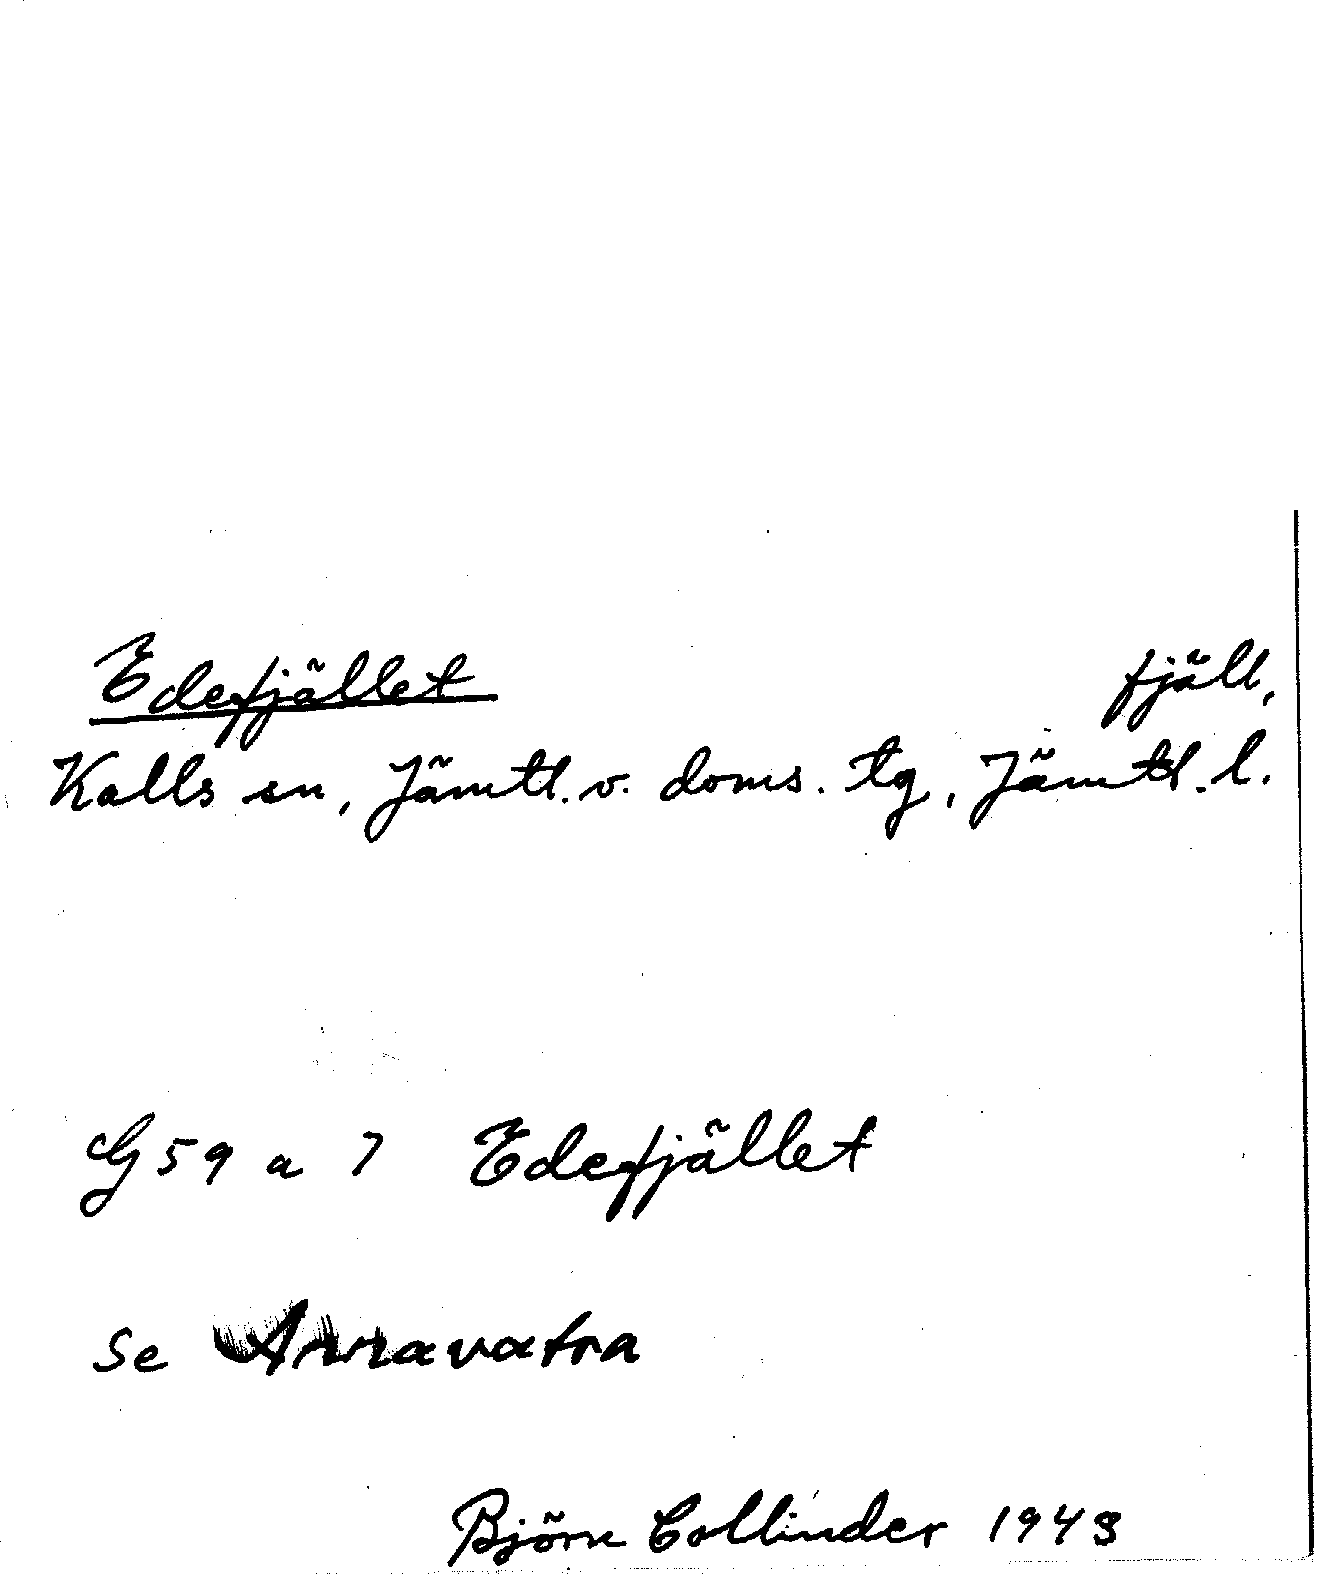 Edefjället fjäll,
Kalls sn, Jämtl. v. doms. tg, Jämtl. l.
G 59 a 7 Edefjället
Se
Björn Collinder 1943